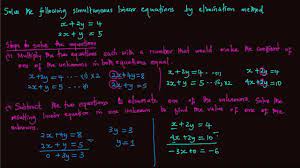 Solve the following simultaneous linear equations by elimination method
x + 2y = 4
2x + y = 5
Steps to solve the equations
i) Multiply the two equations each with a number that would make the coefficient of
one of the unknown in both equations equal.
x + 2y = 4 ...(i) x2
2x + y = 5 ...(ii) x1
2x + 4y = 8
2x + y = 5
x + 2y = 4
4x + 2y = 10
ii) Subtract the two equations to eliminate one of the unknowns. Solve the
resulting linear equation in one unknown to give the value of one of the
unknowns.
2x + 4y = 8
2x + y = 5
0 + 3y = 3
3y = 3
y = 1
x + 2y = 4
4x + 2y = 10
-3x + 0 = -6